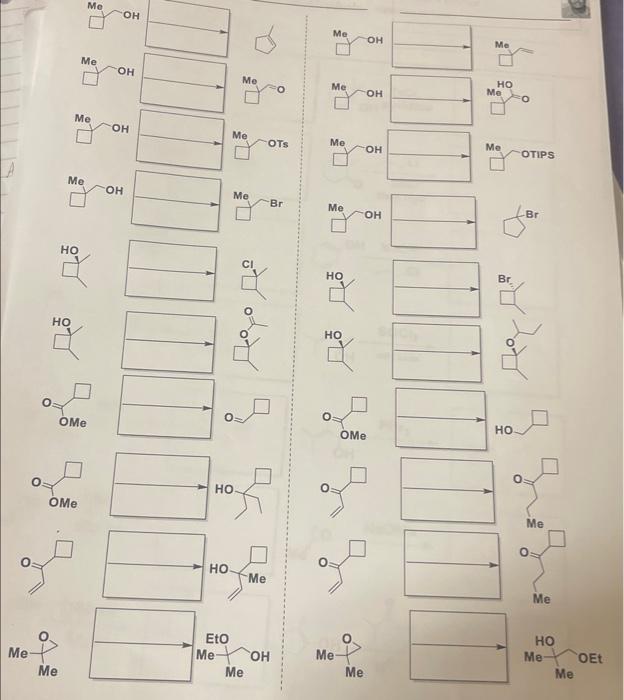 Me OH
Me OH Me O
Me OH Me OTs
Me OH Me Br
HO Cl
HO O O
O OMe O
O OMe HO
O HO Me
O Me Me EtO Me OH Me
Me OH Me
Me OH HO Me O
Me OH Me OTIPS
Me OH Br
HO Br
HO O
O OMe HO
O O Me
O O Me
O Me Me HO Me OEt Me